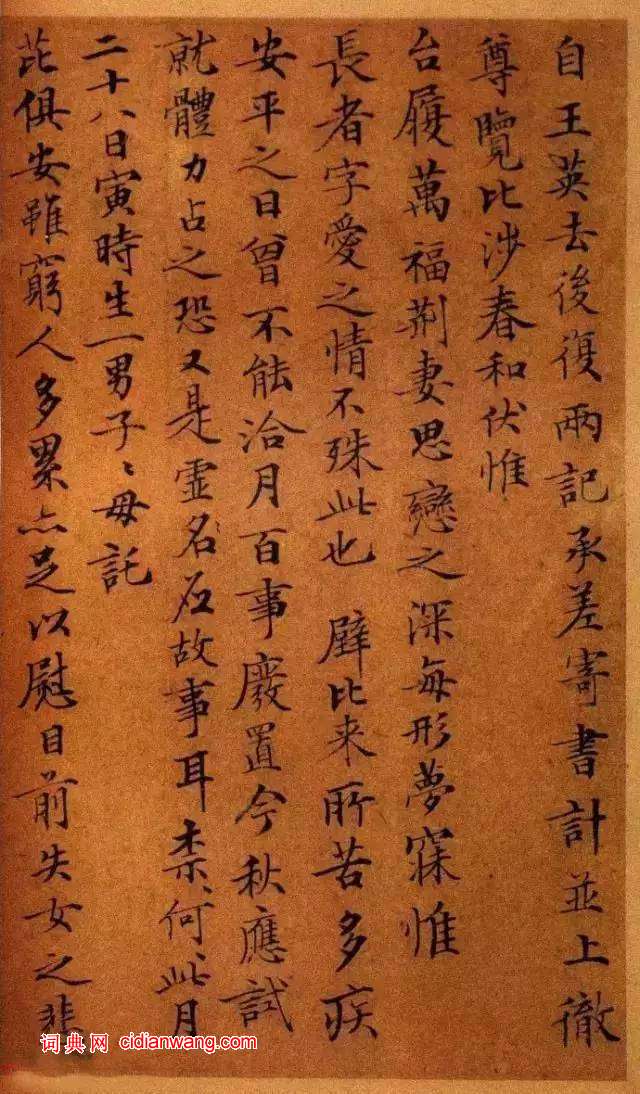 自王英去後復兩記承差寄書計並上徹
尊覽比涉春和伏惟
台履萬福荆妻思戀之深每形夢寐惟
長者字愛之情不殊此也 璧比来所苦多疾
安平之日曾不能洽月百事廢置今秋應試
就體力占之恐又是虛名應故事耳柰何柰何此月
二十八日寅時生一男子子母託
芘俱安雖窮人多累亦足以慰目前失女之悲
词典网 cidianwang.com